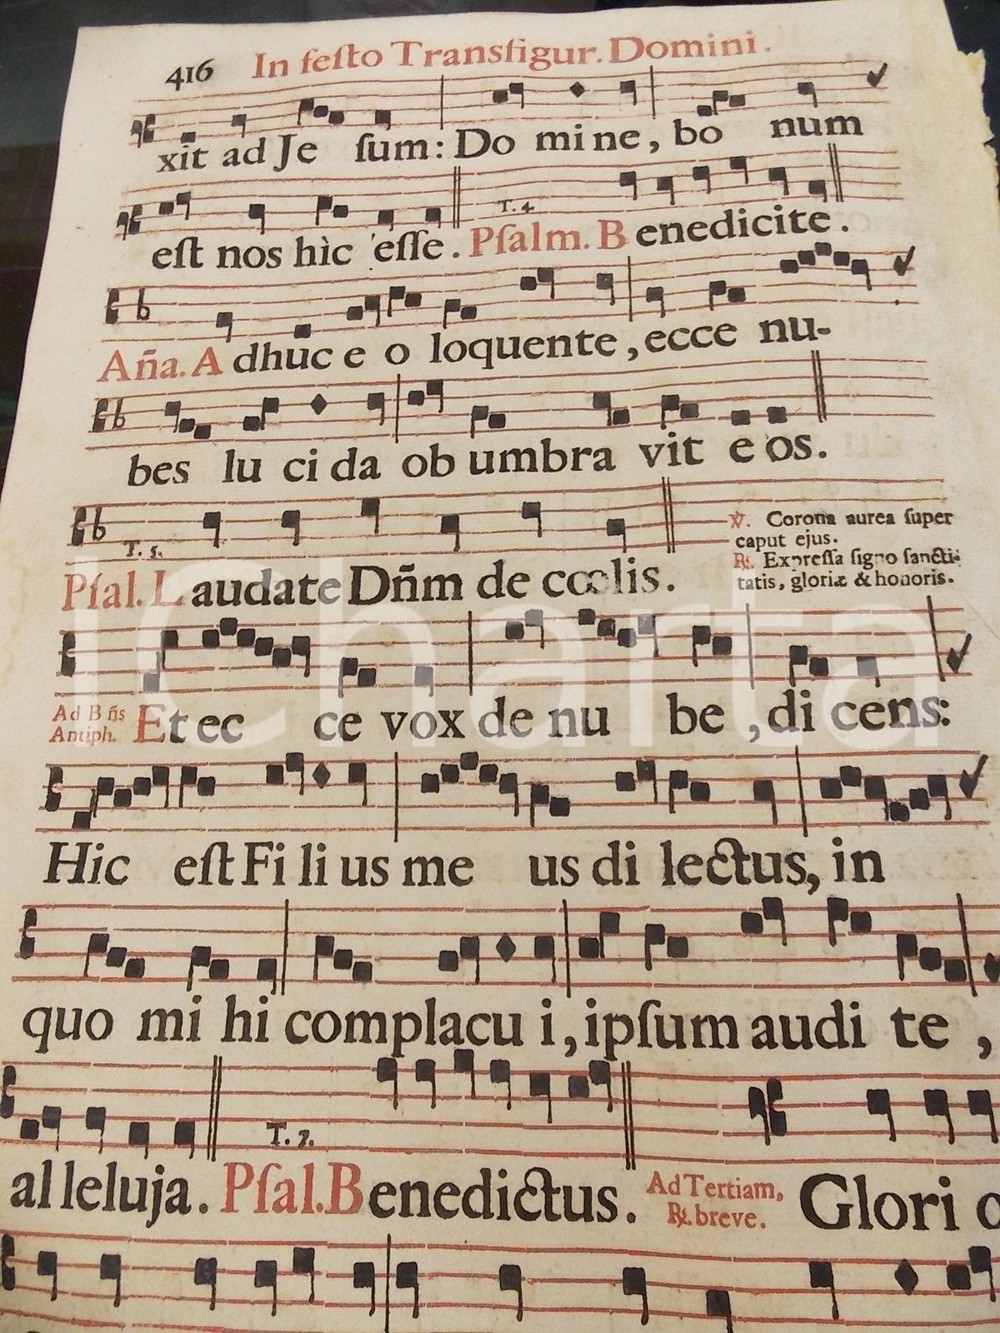 416 In feſto Transfigur. Domini.
xit ad Je ſum: Do mi ne, bo num
T. 4.
eſt nos hìc eſſe. Pſalm. B enedicite.
Aña. A dhuc e o loquente, ecce nu-
bes lu ci da ob umbra vit e os.
℣. Corona aurea ſuper
caput ejus.
℟. Expreſſa ſigno ſancti-
tatis, gloriæ & honoris.
T. 5.
Pſal. L audate Dñm de cœlis.
Ad Bñs
Antiph.
Et ec ce vox de nu be, di cens:
Hic eſt Fi li us me us di lectus, in
quo mi hi complacu i, ipſum audi te,
T. 7.
al leluja. Pſal. B enedictus.
Ad Tertiam,
℟. breve.
Glori o
iCharta